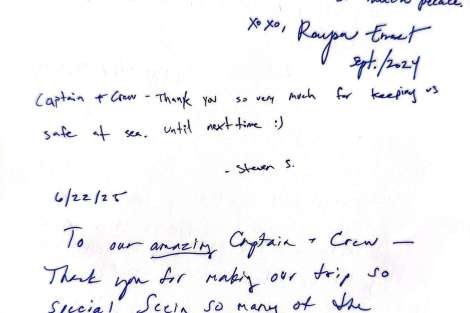 xoxo,
Sept./2024
Captain + Crew - Thank you so very much for keeping us
safe at sea. Until next time :)
- Steven S.
6/22/25
To our amazing Captain + Crew —
Thank you for making our trip so
special. Seein so many of the